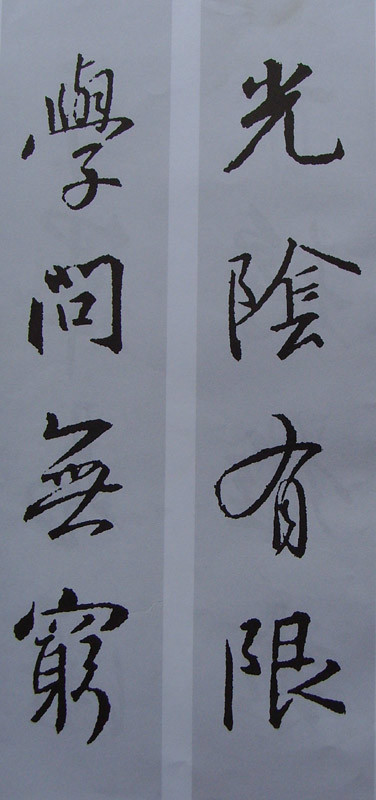 光陰有限
學問無窮